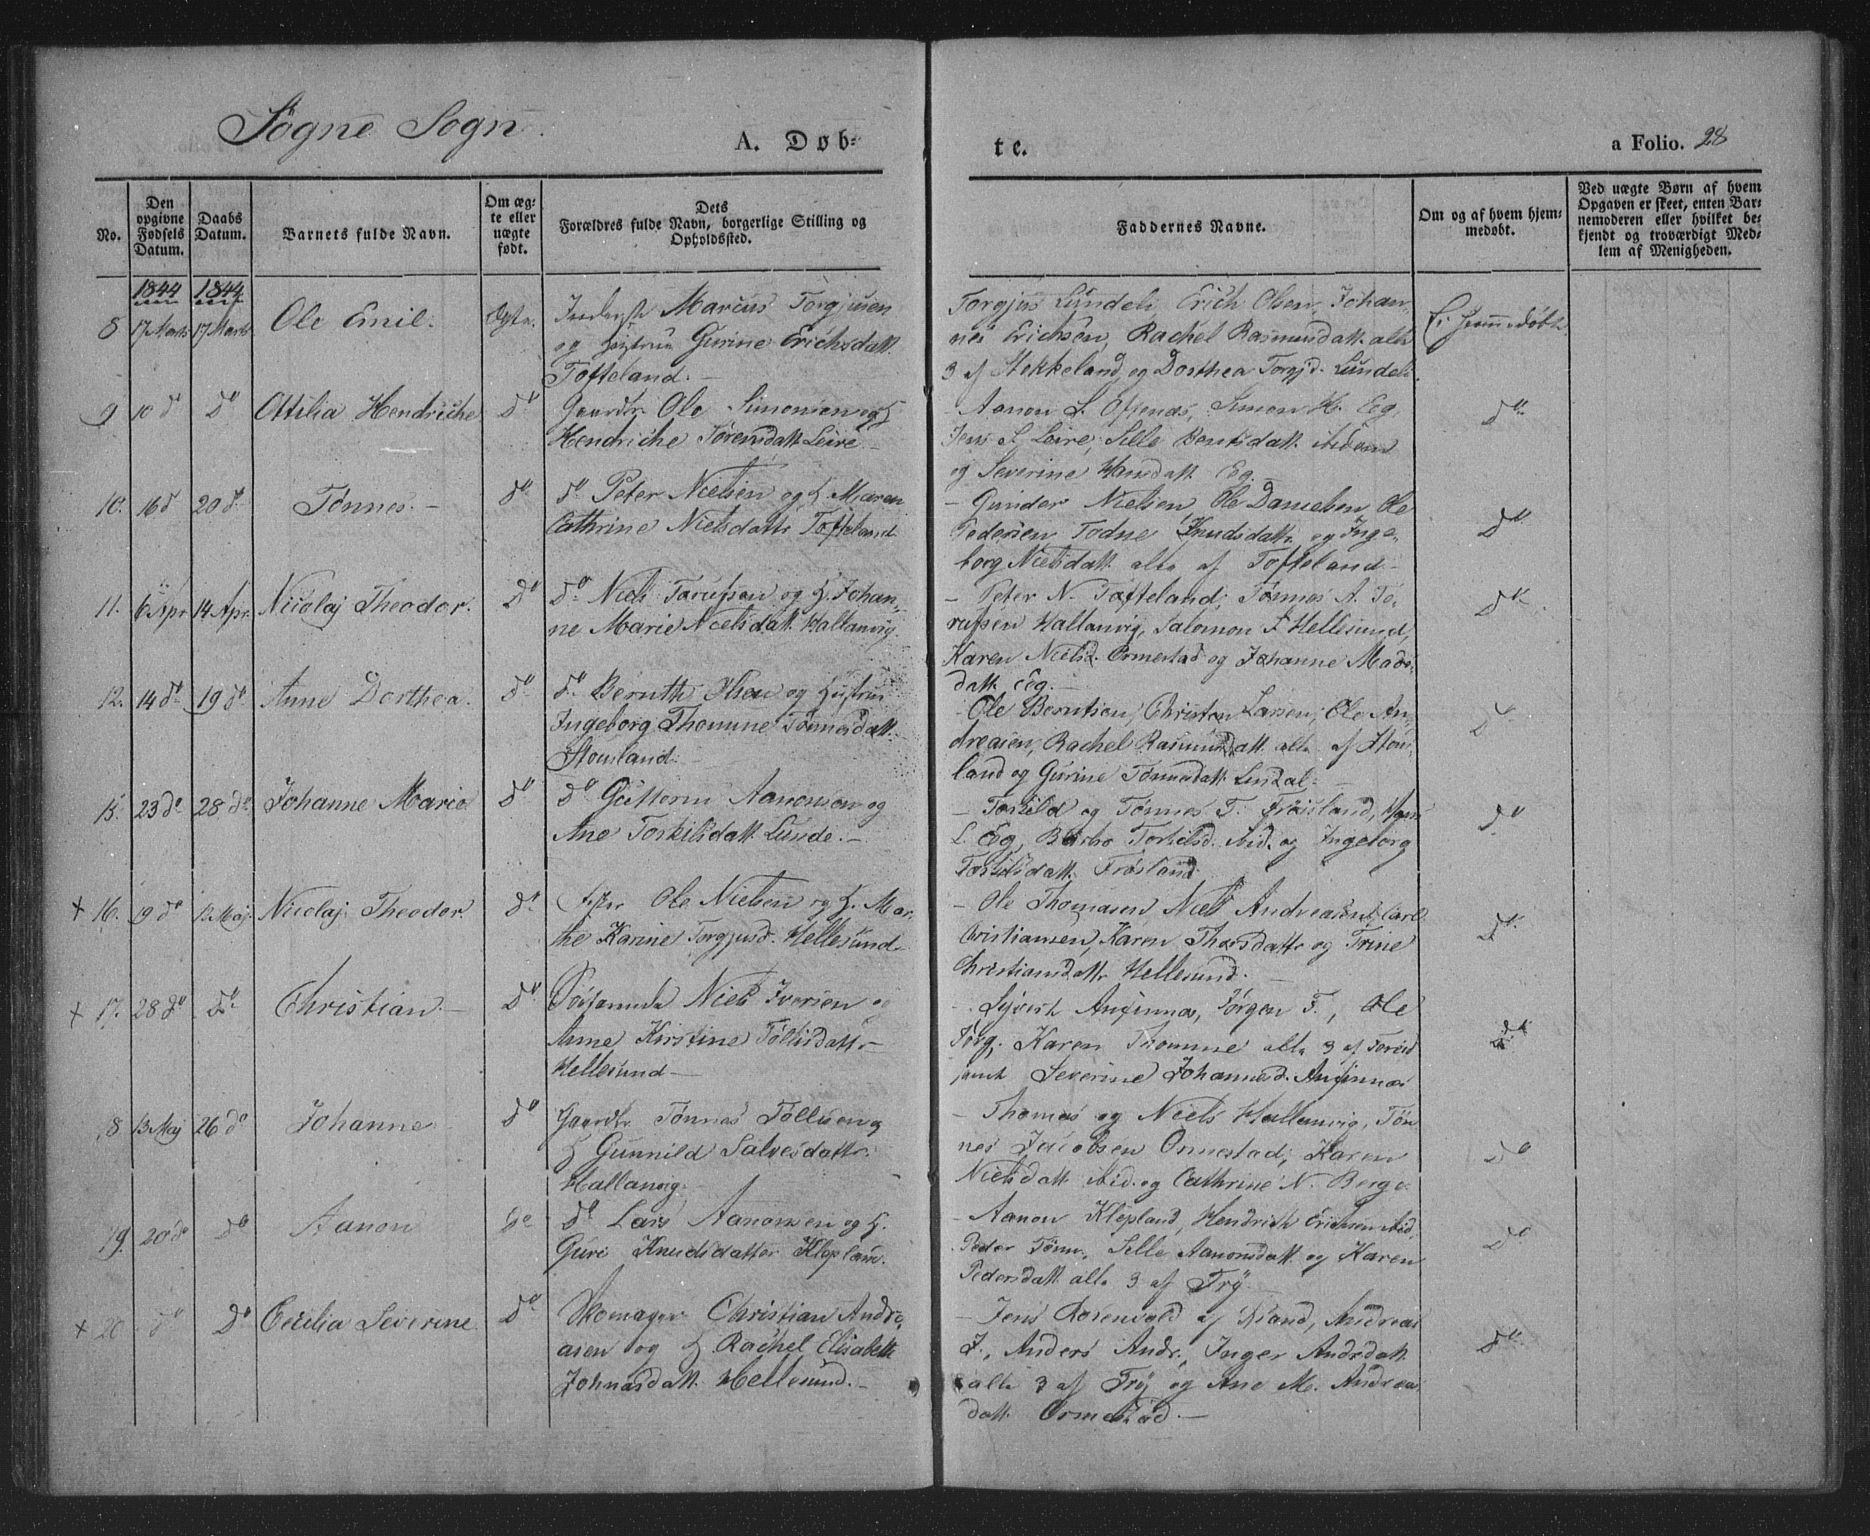 Søgne Sogn.
A. Døb-
te.
a Folio. 28
No.
Den opgivne Fødsels Datum.
Daabs Datum.
Barnets fulde Navn.
Om ægte eller uægte født.
Dets Forældres fulde Navn, borgerlige Stilling og Opholdssted.
Faddernes Navne.
Om og af hvem hjemmedøbt.
Ved uægte Børn af hvem Opgaven er skeet, enten Barnemoderen eller hvilket bekjendt og troværdigt Medlem af Menigheden.
1844 1844
8 17 Marts 17 Marts Ole Emil. Ægte. Inderst Marcus Torgjusen
og Hustrue Gurine Erichsdatt.
Tofteland. –
Torgjus Lundeli, Erich Olsen, Johan-
nes Erichsen, Rachel Rasmusdatt. alle
3 af Stekkeland og Dorthea Torgjd. Lundeli.
Ei hjemmedøbt.
9 10 d° D° Ottilia Hendriche D° Gaardbr. Ole Simonsen og H.
Hendriche Sørensdatt. Leire. –
– Aanon L. Ofjenæs, Simon H. Eeg,
Jens S. Leire, Sille Bentsdatt. ibidem
og Severine Hansdatt. Eeg.
D°.
10. 16 d° 20 d° Tønnes. – d° d° Peter Nielsen og H. Maren
Cathrine Nielsdatt. Tofteland.
– Gunder Nielsen, Ole Danielsen, Ole
Pedersen, Todne Knudsdatt. og Inge-
borg Nielsdatt. alle af Tofteland. –
D°.
11. 6 Apr 14 Apr. Nicolaj Theodor. D° d° Niels Tarufsen og H. Johan-
ne Marie Nielsdatt. Hallanvig.
– Peter N. Tofteland, Tønnes A.
Hallanvig, Salomon T. Hellesund,
Karen Nielsd. Ormestad og Johanne Mads-
datt. Eeg. –
D°.
12. 14 d° 19 d° Anne Dorthea. D° d° Bernth Olsen og Hustrue
Ingeborg Thomine Tønnesdatt.
Stousland. –
– Ole Berntsen, Christen Larsen, Ole An-
dreasen, Rachel Rasmusdatt. alle af Stous-
land og Gurine Tønnesdatt. Lindal. –
D°
15. 23 d° 28 d° Johanne Marie D° D° Guttorm Aanonsen og
Ane Torkilsdatt. Lunde. –
– Torkild og Tønnes T. Frøisland,
L. Eeg, Torkilsd. ibid. og Ingeborg
Torkilsdatt. Frøisland.
D°
+ 16. 19 d° 12 Maj. Nicolaj Theodor. D° Ole Nielsen og H. Mar-
the Karine Torgjusd. Hellesund.
– Ole Thomasen, Niels Andreasen, Carl
Christiansen, Karen Thorsdatt. og Trine
Christiansdatt. Hellesund. –
D°.
+ 17. 28 d° D° Christian. – D° Søfarende Niels Iversen og
Anne Kirstine Tollisdatt.
Hellesund –
– Syvert Aufinnæs, Jørgen T., Ole
Jørg. Karen Thomine alle 3 af
Severine Johannesd. Aufinnæs
D°
18 13 Maj 26 d° Johanne D° Gaardbr. Tønnes Tollisen og
H. Gunnild Salvesdatt.
Hallanvig. –
– Thomas og Niels Hallanvig, Tøn-
nes Jacobsen Ormestad, Karen
Nielsdatt. ibid. og Cathrine N. Berge.
D°
19. 20 d° D° Aanon D° d° Lars Aanonsen og H.
Guri Knudsdatter Klepland.
– Aanon Klepland, Hendrich Erichsen ibid,
Peder Tønn. Sille Aanonsdatt. og Karen
Pedersdatt. alle 3 af Try.
D°
+ 20 d° D° Cecilia Severine. D° Skomager Christian Andre-
asen og H. Rachel Elisabeth
Johnasdatt. Hellesund. –
– Jens Rosenvold af Chrsand, Andreas
J., Anders Andr., Inger Andrdatt.
alle 3 af Try og Ane M. Andrea
datt. Ormestad. –
D°.